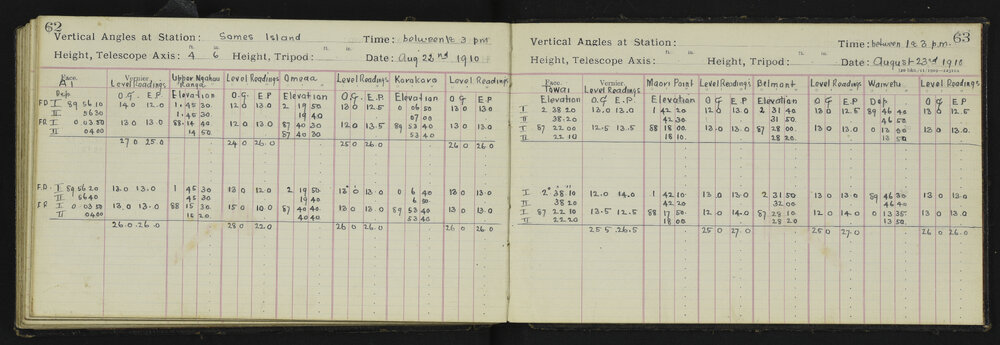 62
Vertical Angles at Station: Somes Island Time: between 1 & 3 p.m
ft. in. ft. in.
Height, Telescope Axis: 4 6 Height, Tripod: Date: Aug 23rd 1910
Face. Vernier. Upper Ngahau Level Readings Omega Level Readings Karakara Level Readings
A1 Level Readings Range
Dep O.G. E.P. Elevation O.G E.P Elevation O.G. E.P. Elevation O.G E.P.
F.D I 89 56 10 14.0 12.0 1. 45 30 12 0 13.0 2 19 50 13.0 12.5 0 06 50 13 0 13.0
II 56 30 1. 45 30 19 40 07 00
F.R I 0 03 50 13 0 13.0 88. 14 40 12.0 13.0 87 40 30 12 0 13.5 89 53 40 13 0 13.0
II 04 00 14 50 87 40 30 53 40
27 0 25.0 24 0 26.0 25 0 26.0 26 0 26.0
F.D. I 89 56 20 13.0 13.0 1 45 30 13 0 12.0 2 19 50 13.0 13.0 0 6 40 13 0 13.0
II 56 40 45 30 19 40 6 50
F.R I 0 03 50 13.0 13.0 88 15 30 15 0 10.0 87 40 40 13 0 13.0 89 53 40 13 0 13.0
II 04 00 15 20 40 40 53 40
26.0 26.0 28 0 22.0 26 0 26.0 26 0 26.0
63
Vertical Angles at Station: Time: between 1 & 3 p.m.
ft. in. ft. in.
Height, Telescope Axis: Height, Tripod: Date: August 23rd 1910
Face. Vernier. Maori Point Level Readings Belmont Level Readings Waiwetu Level Readings
Towai Level Readings
Elevation O.G E.P. Elevation O.G E.P. Elevation O.G. E.P. Dep O.G E.P.
I 2 38.20 13.0 13.0 1 42 20 13 0 13.0 2 31 40 13 0 12.5 89 46 40 13 0 12.5
II 38.20 42 30 31 50 46 50
I 87 22 00 12.5 13.5 88 18 00 13.0 13.0 87 28 00 13.0 13.0 0 13 00 13 0 13.0
II 22 10 18 10. 28. 20 13 50
I 2° 38 10 12.0 14.0 1 42 10 13 0 13.0 2 31 50 13 0 13.0 89 46 30 13 0 13.0
II 38 20 42 20 32 00 46 40
I 87 22 10 13.5 12.5 88 17 50 12 0 14.0 87 28 10 12 0 14.0 0 13 35 13 0 13.0
II 22 20 18 00 28 20 13 50
25 5 26.5 25 0 27.0 25 0 27.0 26 0 26.0